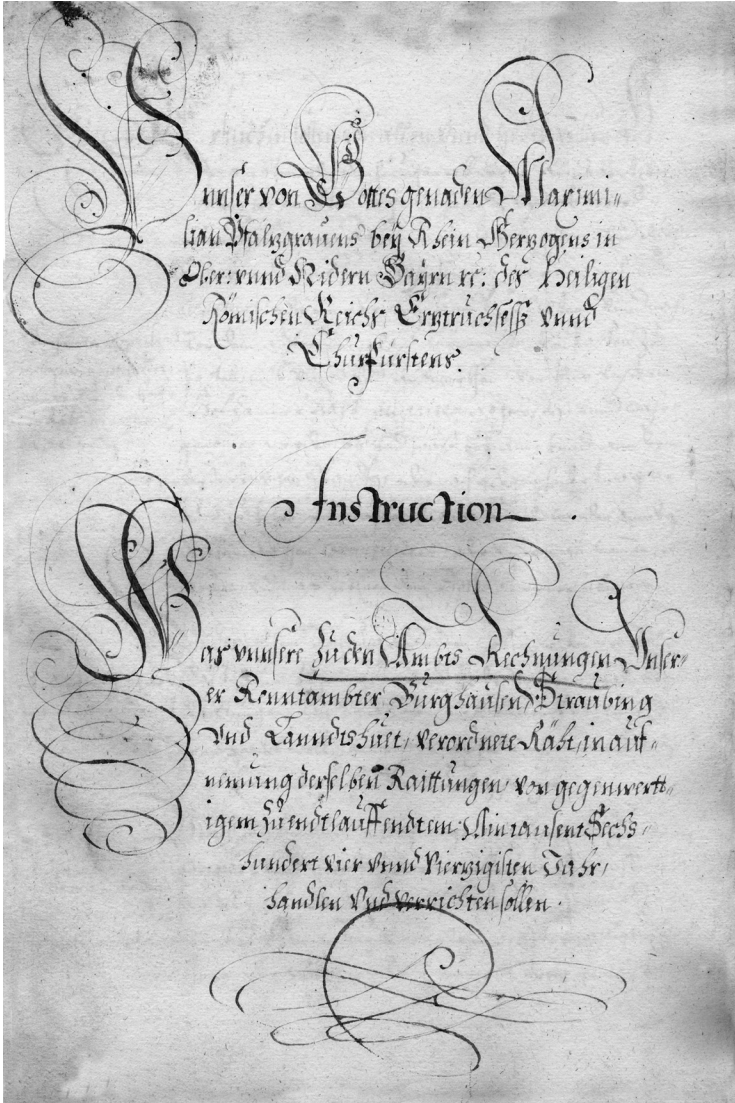 Vunser von Gottes genaden Maximi-
lian Pfalzgrauens beÿ Rhein Herzogens in
Ober: vnnd Nidern Bayrn rc: des Heiligen
Römischen Reichs Erztruchsess vnnd
Churfürstens.
Instruction.
Was vnnsere Zu den Ambts Rechnungen Vnser-
er Renntambter Burghausen, Straubing
Vnd Lanndtshuet, verordnete Räht, in auf-
nemung derselben Raittungen, von gegenwertt-
igem Zu endt lauffendtem Ain tausent Sechs-
hundert vier vnnd Vierzigisten Jahr,
handlen Vnd verrichten sollen.